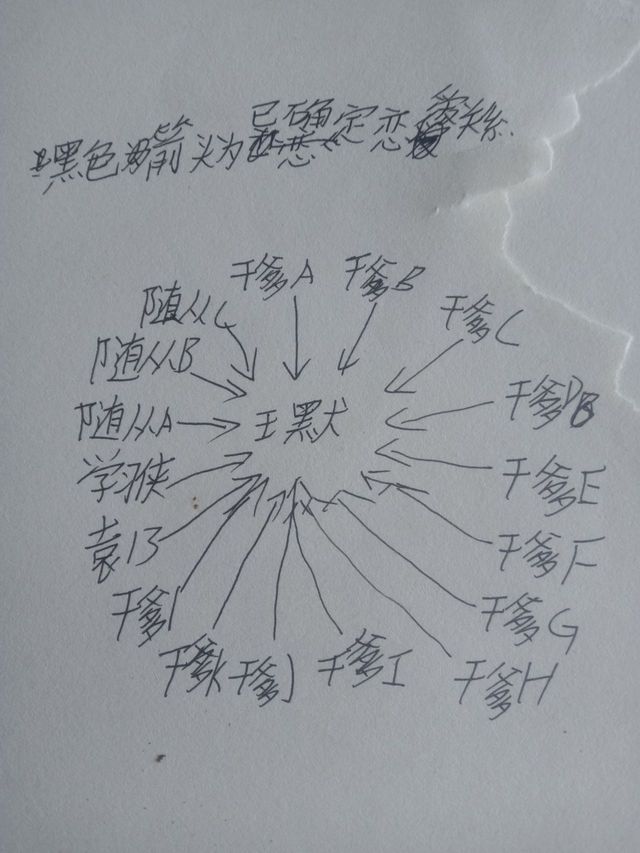 黑色箭头为已确定恋爱关系.
干爹A
干爹B
随从C
干爹C
随从B
干爹D
随从A
王默
学猴
干爹E
袁13
干爹F
干爹1
干爹G
干爹K
干爹J
干爹I
干爹H